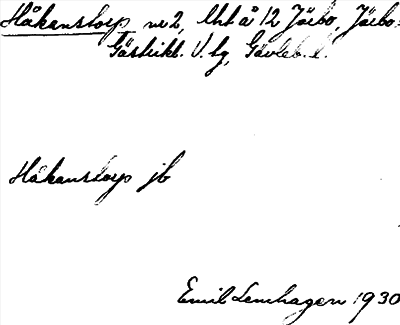 Håkanstorp nr 2, Utt å 12 Järbo, Järbo
Gästrikl. V. tg, Gävleb. l.
Håkanstorp jb
Emil Lemhagen 1930